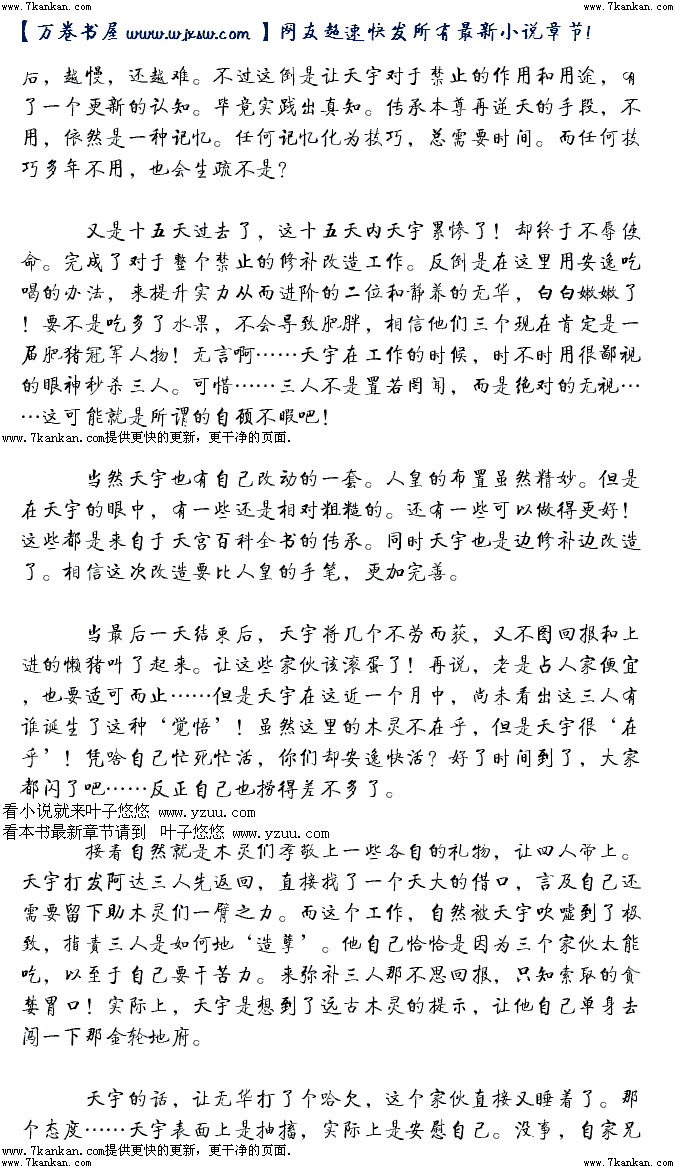 www.7kankan.com www.7kankan.com
【万卷书屋 www.wjxsw.com 】网友超速快发所有最新小说章节！
后，越慢，还越难。不过这倒是让天宇对于禁止的作用和用途，有
了一个更新的认知。毕竟实践出真知。传承本尊再逆天的手段，不
用，依然是一种记忆。任何记忆化为技巧，总需要时间。而任何技
巧多年不用，也会生疏不是？
又是十五天过去了，这十五天内天宇累惨了！却终于不辱使
命。完成了对于整个禁止的修补改造工作。反倒是在这里用安逸吃
喝的办法，来提升实力从而进阶的二位和静养的无华，白白嫩嫩了
！要不是吃多了水果，不会导致肥胖，相信他们三个现在肯定是一
届肥猪冠军人物！无言啊……天宇在工作的时候，时不时用很鄙视
的眼神秒杀三人。可惜……三人不是置若罔闻，而是绝对的无视…
…这可能就是所谓的自顾不暇吧！
www.7kankan.com提供更快的更新，更干净的页面.
当然天宇也有自己改动的一套。人皇的布置虽然精妙。但是
在天宇的眼中，有一些还是相对粗糙的。还有一些可以做得更好！
这些都是来自于天宫百科全书的传承。同时天宇也是边修补边改造
了。相信这次改造要比人皇的手笔，更加完善。
当最后一天结束后，天宇将几个不劳而获，又不图回报和上
进的懒猪叫了起来。让这些家伙该滚蛋了！再说，老是占人家便宜
，也要适可而止……但是天宇在这近一个月中，尚未看出这三人有
谁诞生了这种‘觉悟’！虽然这里的木灵不在乎，但是天宇很‘在
乎’！凭啥自己忙死忙活，你们却安逸快活？好了时间到了，大家
都闪了吧……反正自己也捞得差不多了。
看小说就来叶子悠悠 www.yzuu.com
看本书最新章节请到 叶子悠悠 www.yzuu.com
接着自然就是木灵们孝敬上一些各自的礼物，让四人带上。
天宇打发阿达三人先返回，直接找了一个天大的借口，言及自己还
需要留下助木灵们一臂之力。而这个工作，自然被天宇吹嘘到了极
致，指责三人是如何地‘造孽’。他自己恰恰是因为三个家伙太能
吃，以至于自己要干苦力。来弥补三人那不思回报，只知索取的贪
婪胃口！实际上，天宇是想到了远古木灵的提示，让他自己单身去
闯一下那金轮地府。
天宇的话，让无华打了个哈欠，这个家伙直接又睡着了。那
个态度……天宇表面上是抽搐，实际上是安慰自己。没事，自家兄
www.7kankan.com提供更快的更新，更干净的页面.
www.7kankan.com www.7kankan.com